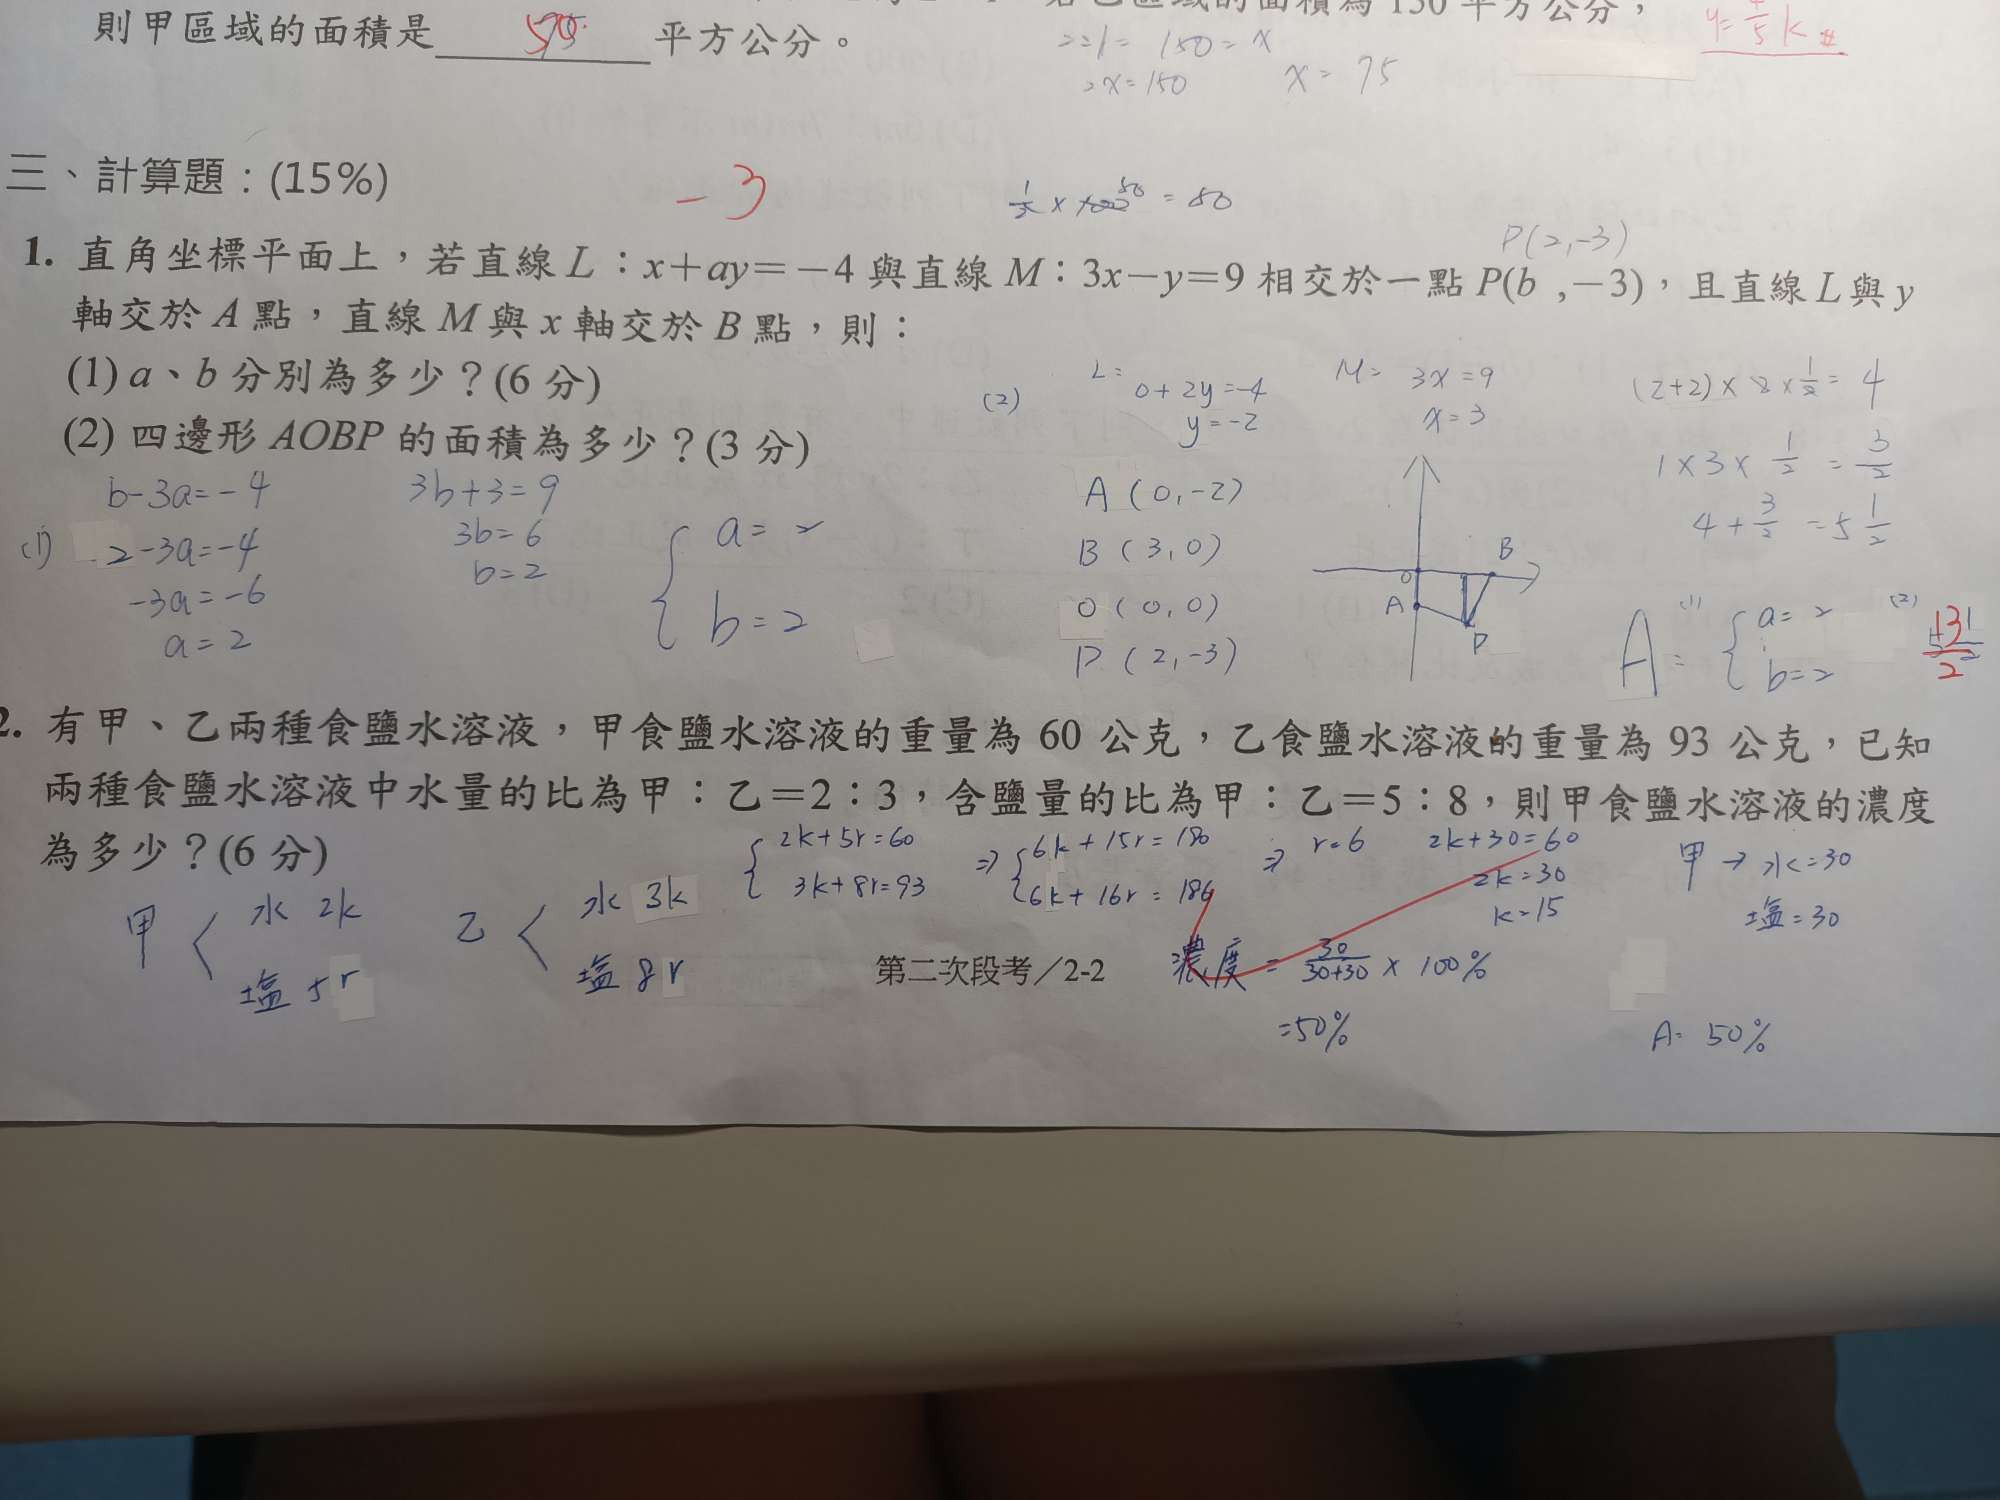 若乙區域的面積為 150 平方公分，
則甲區域的面積是 平方公分。
2:1= 150=x
2x=150
x=75
y=4/5 k #
三、計算題：(15%)
-3
= 80
1. 直角坐標平面上，若直線 L：x+ay=-4 與直線 M：3x-y=9 相交於一點 P(b ,-3)，且直線 L 與 y
P(2,-3)
軸交於 A 點，直線 M 與 x 軸交於 B 點，則：
(1) a、b 分別為多少？(6 分)
(2) 四邊形 AOBP 的面積為多少？(3 分)
(1)
b-3a=-4
2-3a=-4
-3a=-6
a=2
3b+3=9
3b=6
b=2
a=2
b=2
(2)
L: 0+2y=-4
y=-2
M: 3x=9
x=3
A (0,-2)
B (3,0)
O (0,0)
P (2,-3)
O
A
B
P
1×3×1/2 = 3/2
4+3/2 =5 1/2
A= (1) a=2
b=2
(2)
13/2
2. 有甲、乙兩種食鹽水溶液，甲食鹽水溶液的重量為 60 公克，乙食鹽水溶液的重量為 93 公克，已知
兩種食鹽水溶液中水量的比為甲：乙=2：3，含鹽量的比為甲：乙=5：8，則甲食鹽水溶液的濃度
為多少？(6 分)
甲 水 2k
塩 5r
乙 水 3k
塩 8r
2k+5r=60
3k+8r=93
⇒ 6k+15r=180
6k+16r=186
⇒ r=6
2k+30=60
2k=30
k=15
甲→水=30
塩=30
濃度 = 30/30+30 × 100%
=50%
A= 50%
第二次段考／2-2